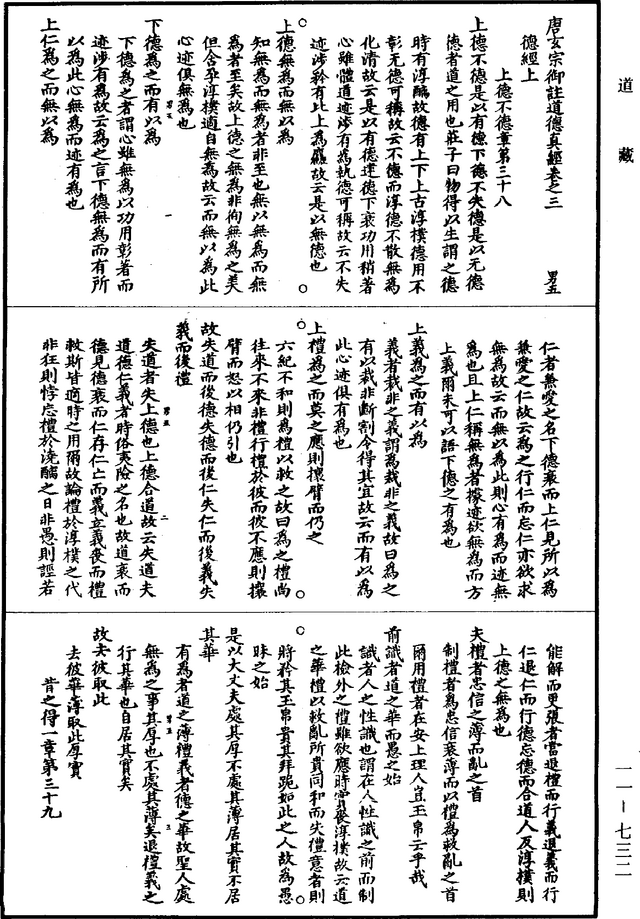 道藏
唐玄宗御註道德真經卷之三 男五
德經上
上德不德章第三十八
上德不德是以有德下德不失德是以无德
德者道之用也莊子曰物得以生謂之德
時有淳醨故德有上下上古淳樸德用不
彰无德可稱故云不德而淳德不散無為
化清故云是以有德逮德下衰功用稍著
心雖體道迹涉有為執德可稱故云不失
迹涉矜有比上為麤故云是以無德也
上德無為而無以為
知無為而無為者非至也無以無為而無
為者至矣故上德之無為非徇無為之美
但含孕淳樸適自無為故云而無以為此
心迹俱無為也
下德為之而有以為
男五 一
下德為之者謂心雖無為以功用彰著而
迹涉有為故云為之言下德無為而有所
以為此心無為而迹有為也
上仁為之而無以為
仁者兼愛之名下德衰而上仁見所以為
兼愛之仁故云為之行仁而忘仁亦欲求
無為故云而無以為此則心有為而迹無
為也且上仁稱無為者據迹欲無為而方
上義爾未可以語下德之有為也
上義為之而有以為
義者裁非之義謂為裁非之義故曰為之
有以裁非斷割令得其宜故云而有以為
此心迹俱有為也
上禮為之而莫之應則攘臂而仍之
六紀不和則為禮以救之故曰為之禮尚
往來不來非禮行禮於彼而彼不應則攘
臂而怒以相仍引也
故失道而後德失德而後仁失仁而後義失
義而後禮
男五 二
失道者失上德也上德合道故云失道夫
道德仁義者時俗夷險之名也故道衰而
德見德衰而仁存仁亡而義立義喪而禮
救斯皆適時之用爾故論禮於淳樸之代
非狂則悖忘禮於澆醨之日非愚則誣若
能解而更張者當退禮而行義退義而行
仁退仁而行德忘德而合道人反淳樸則
上德之無為也
夫禮者忠信之薄而亂之首
制禮者為忠信衰薄而以禮為救亂之首
爾用禮者在安上理人豈玉帛云乎哉
前識者道之華而愚之始
識者人之性識也謂在人性識之前而制
此檢外之禮雖欲應時實喪淳樸故云道
之華禮以救亂所貴同和而失禮意者則
將矜其玉帛貴其拜跪如此之人故為愚
昧之始
是以大丈夫處其厚不處其薄居其實不居
其華
男五 三
有為者道之薄禮義者德之華故聖人處
無為之事其厚也不處其薄矣退禮義之
行其華也自居其實矣
故去彼取此
去彼華薄取此厚實
昔之得一章第三十九
一一－七三二